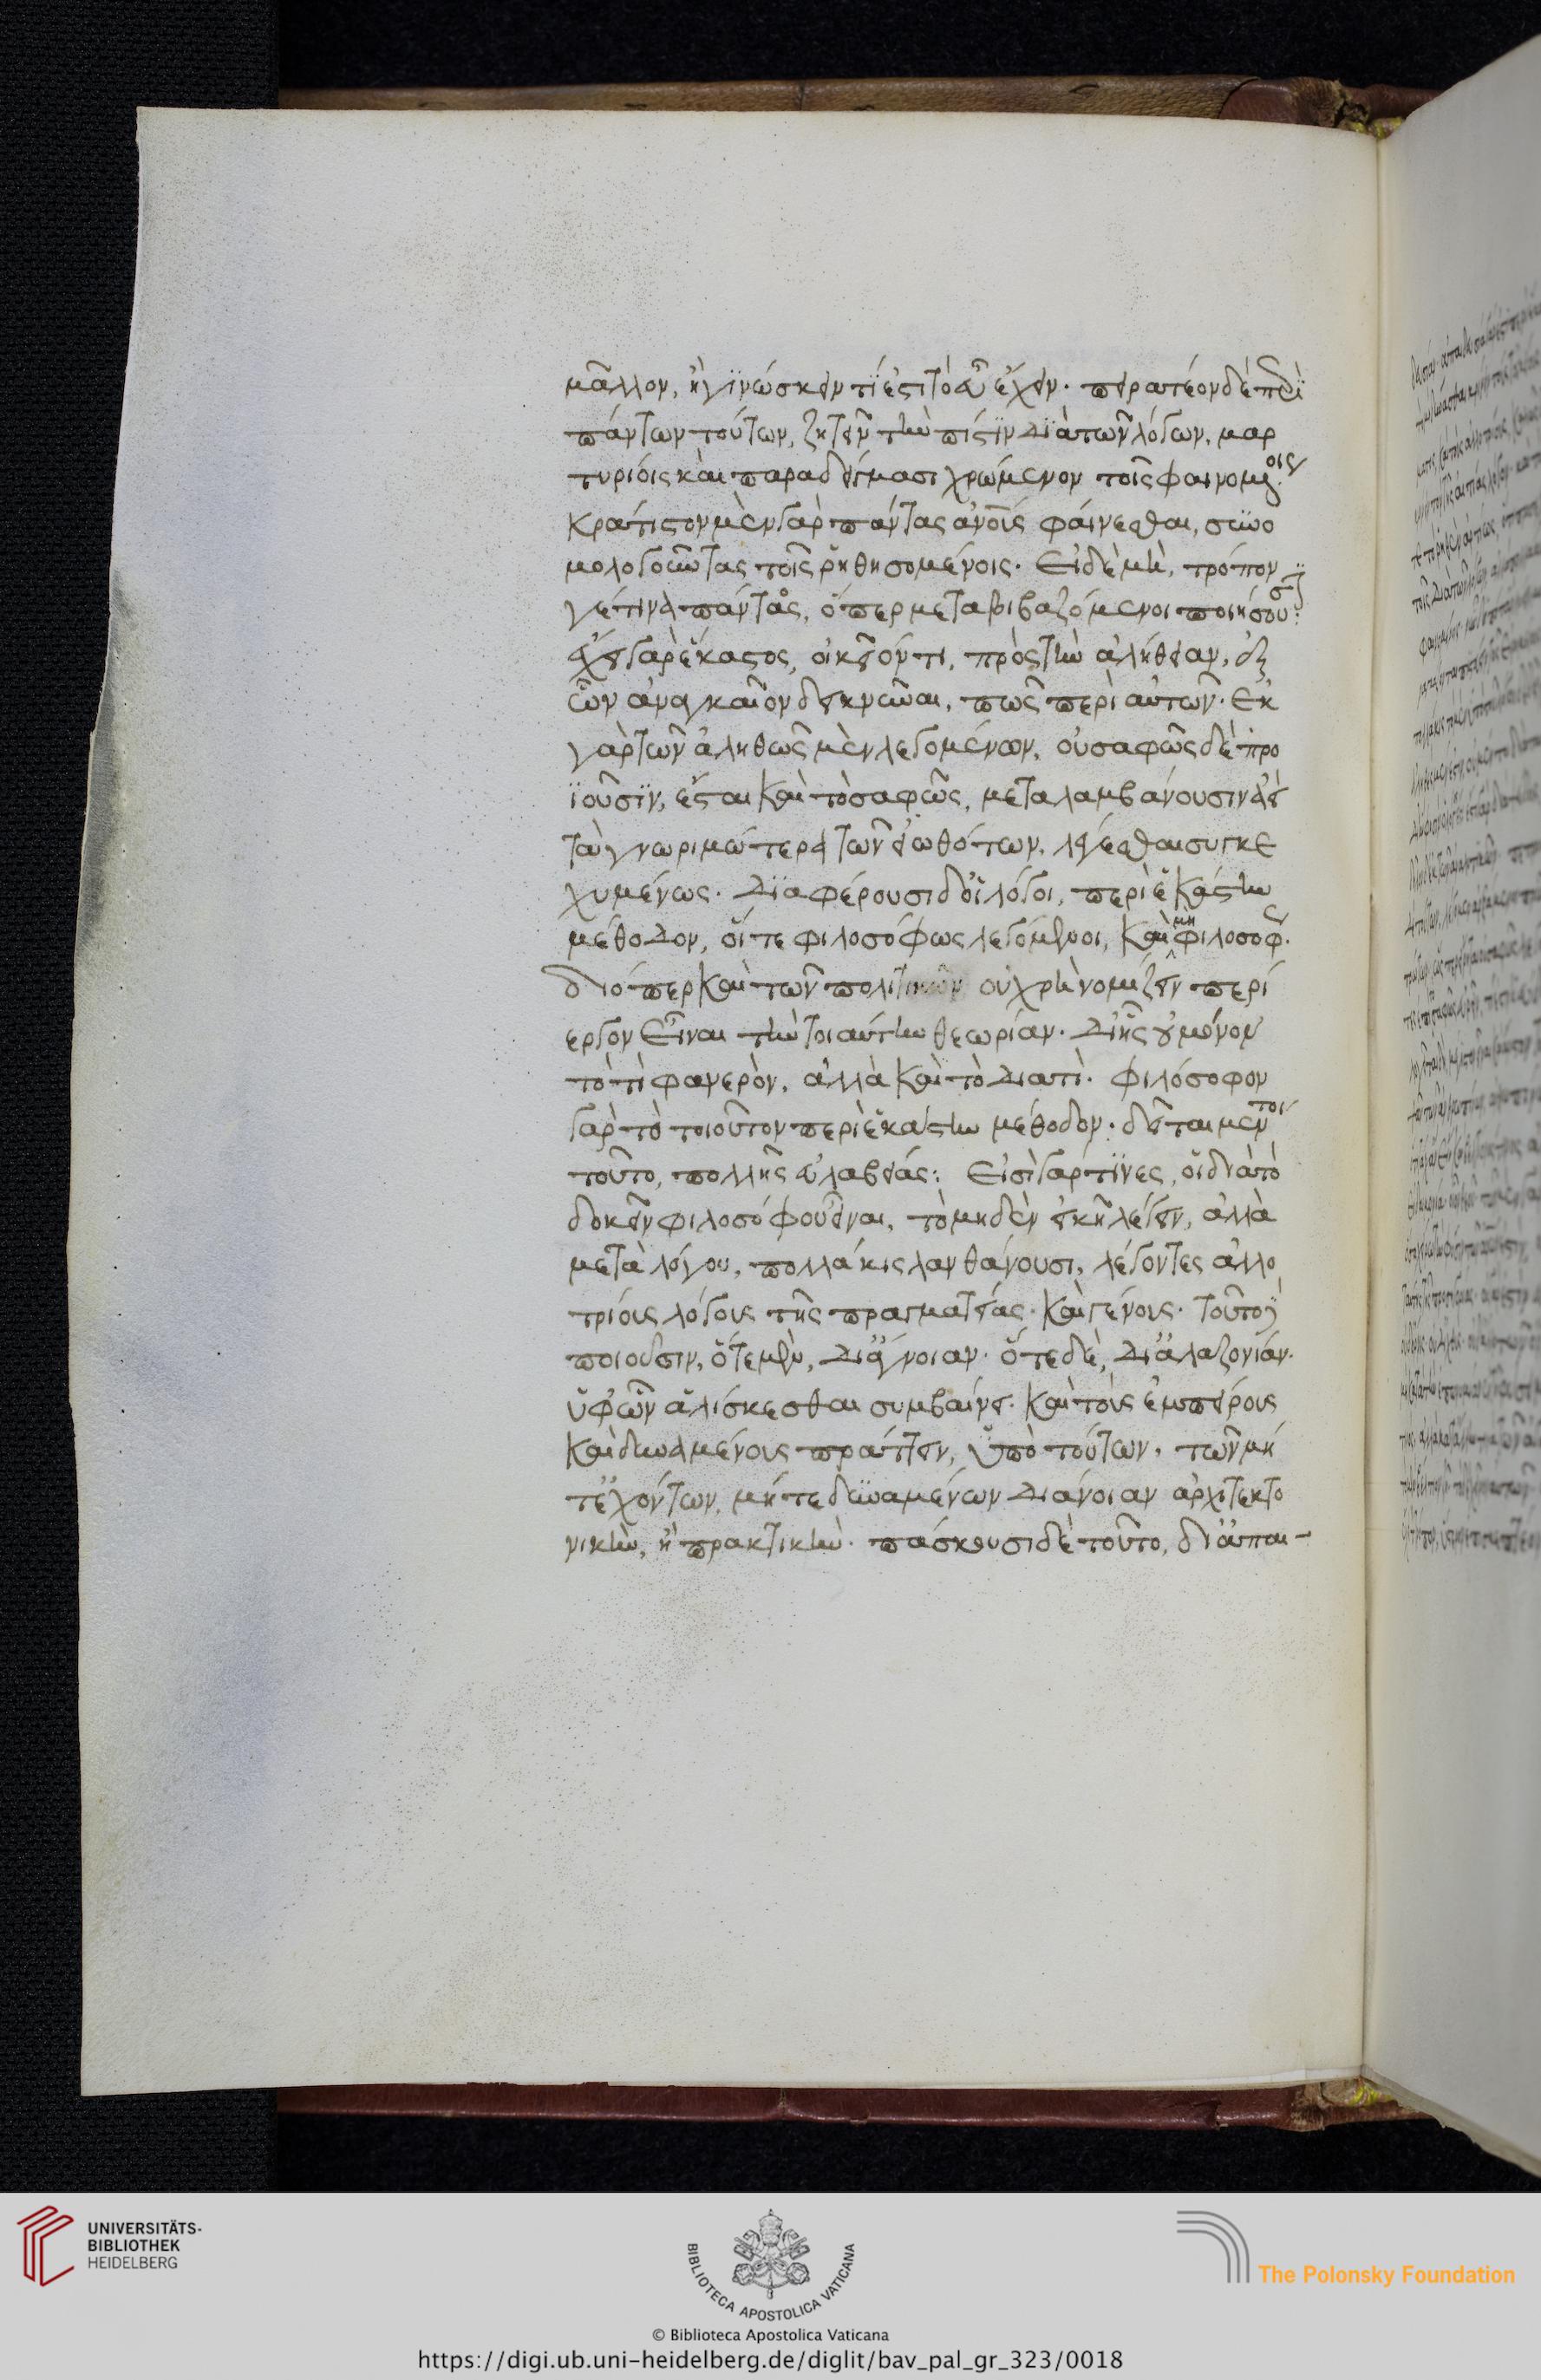 μᾶλλον, ἢ γϊνώσκειν τί ἐστι τὸ εὖ ἔχειν. πειρατέον δὲ περὶ
πάντων τούτων, ζητεῖν τὴν πίστϊν δϊὰ τῶν λόγων, μαρ
τυρίοις καὶ παραδείγμασι χρώμενον τοῖς φαινομένοις.
Κράτιστον μὲν γὰρ πάντας ἀνοῖς φαίνεσθαι, συνο
μολογοῦντας τοῖς ῥηθησομένοις. Εἰ δὲ μὴ, τρόπον
γέ τινα πάντας, ὅπερ μεταβιβαζόμενοι ποιήσουσϊ:
ἔχει γὰρ ἕκαστος, οἰκεῖόν τι, πρὸς τὴν ἀλήθειαν, ἐξ
ὧν ἀναγκαῖον δεικνύναι, πῶς περὶ αὐτῶν. Ἐκ
γὰρ τῶν ἀληθῶς μὲν λεγομένων, οὐ σαφῶς δὲ προ
ϊοῦσϊν, ἔσται καὶ τὸ σαφῶς, μεταλαμβάνουσιν ἀεὶ
τὰ γνωριμώτερα τῶν εἰωθότων, λέγεσθαι συγκε
χυμένως. Δϊαφέρουσι δ' οἱ λόγοι, περὶ ἑκάστην
μέθοδον, οἵ τε φιλοσόφως λεγόμενοι, καὶ μὴ φιλοσόφως.
διόπερ καὶ τῶν πολιτικῶν οὐ χρὴ νομίζειν περί
εργον εἶναι τὴν τοιαύτην θεωρίαν. δι' ἧς οὐ μόνον
τὸ τὶ φανερὸν, ἀλλὰ καὶ τὸ διατὶ. φιλόσοφον
γὰρ τὸ τοιοῦτον περὶ ἑκάστην μέθοδον. δεῖται μέντοι
τοῦτο, πολλῆς εὐλαβείας: Εἰσὶ γάρ τϊνες, οἳ διὰ τὸ
δοκεῖν φιλοσόφου εἶναι, τὸ μηδὲν εἰκῆ λέγειν, ἀλλὰ
μετὰ λόγου, πολλάκις λανθάνουσι, λέγοντες ἀλλο
τρίους λόγους τῆς πραγματείας. καὶ γένους. τοῦτο
ποιοῦσιν, ὅτε μὲν, δι' ἄγνοιαν. ὅτε δὲ, δι' ἀλαζονίαν.
ὑφ' ὧν ἁλίσκεσθαι συμβαίνει. καὶ τοὺς ἐμπείρους
καὶ δυναμένους πράττειν, ὑπὸ τούτων, τῶν μή
τ' ἐχόντων, μήτε δυναμένων διάνοιαν ἀρχιτεκτο
νικὴν, ἢ πρακτικὴν. πάσχουσι δὲ τοῦτο, δι' ἀπαι-
UNIVERSITÄTS-
BIBLIOTHEK
HEIDELBERG
BIBLIOTECA APOSTOLICA VATICANA
The Polonsky Foundation
© Biblioteca Apostolica Vaticana
https://digi.ub.uni-heidelberg.de/diglit/bav_pal_gr_323/0018